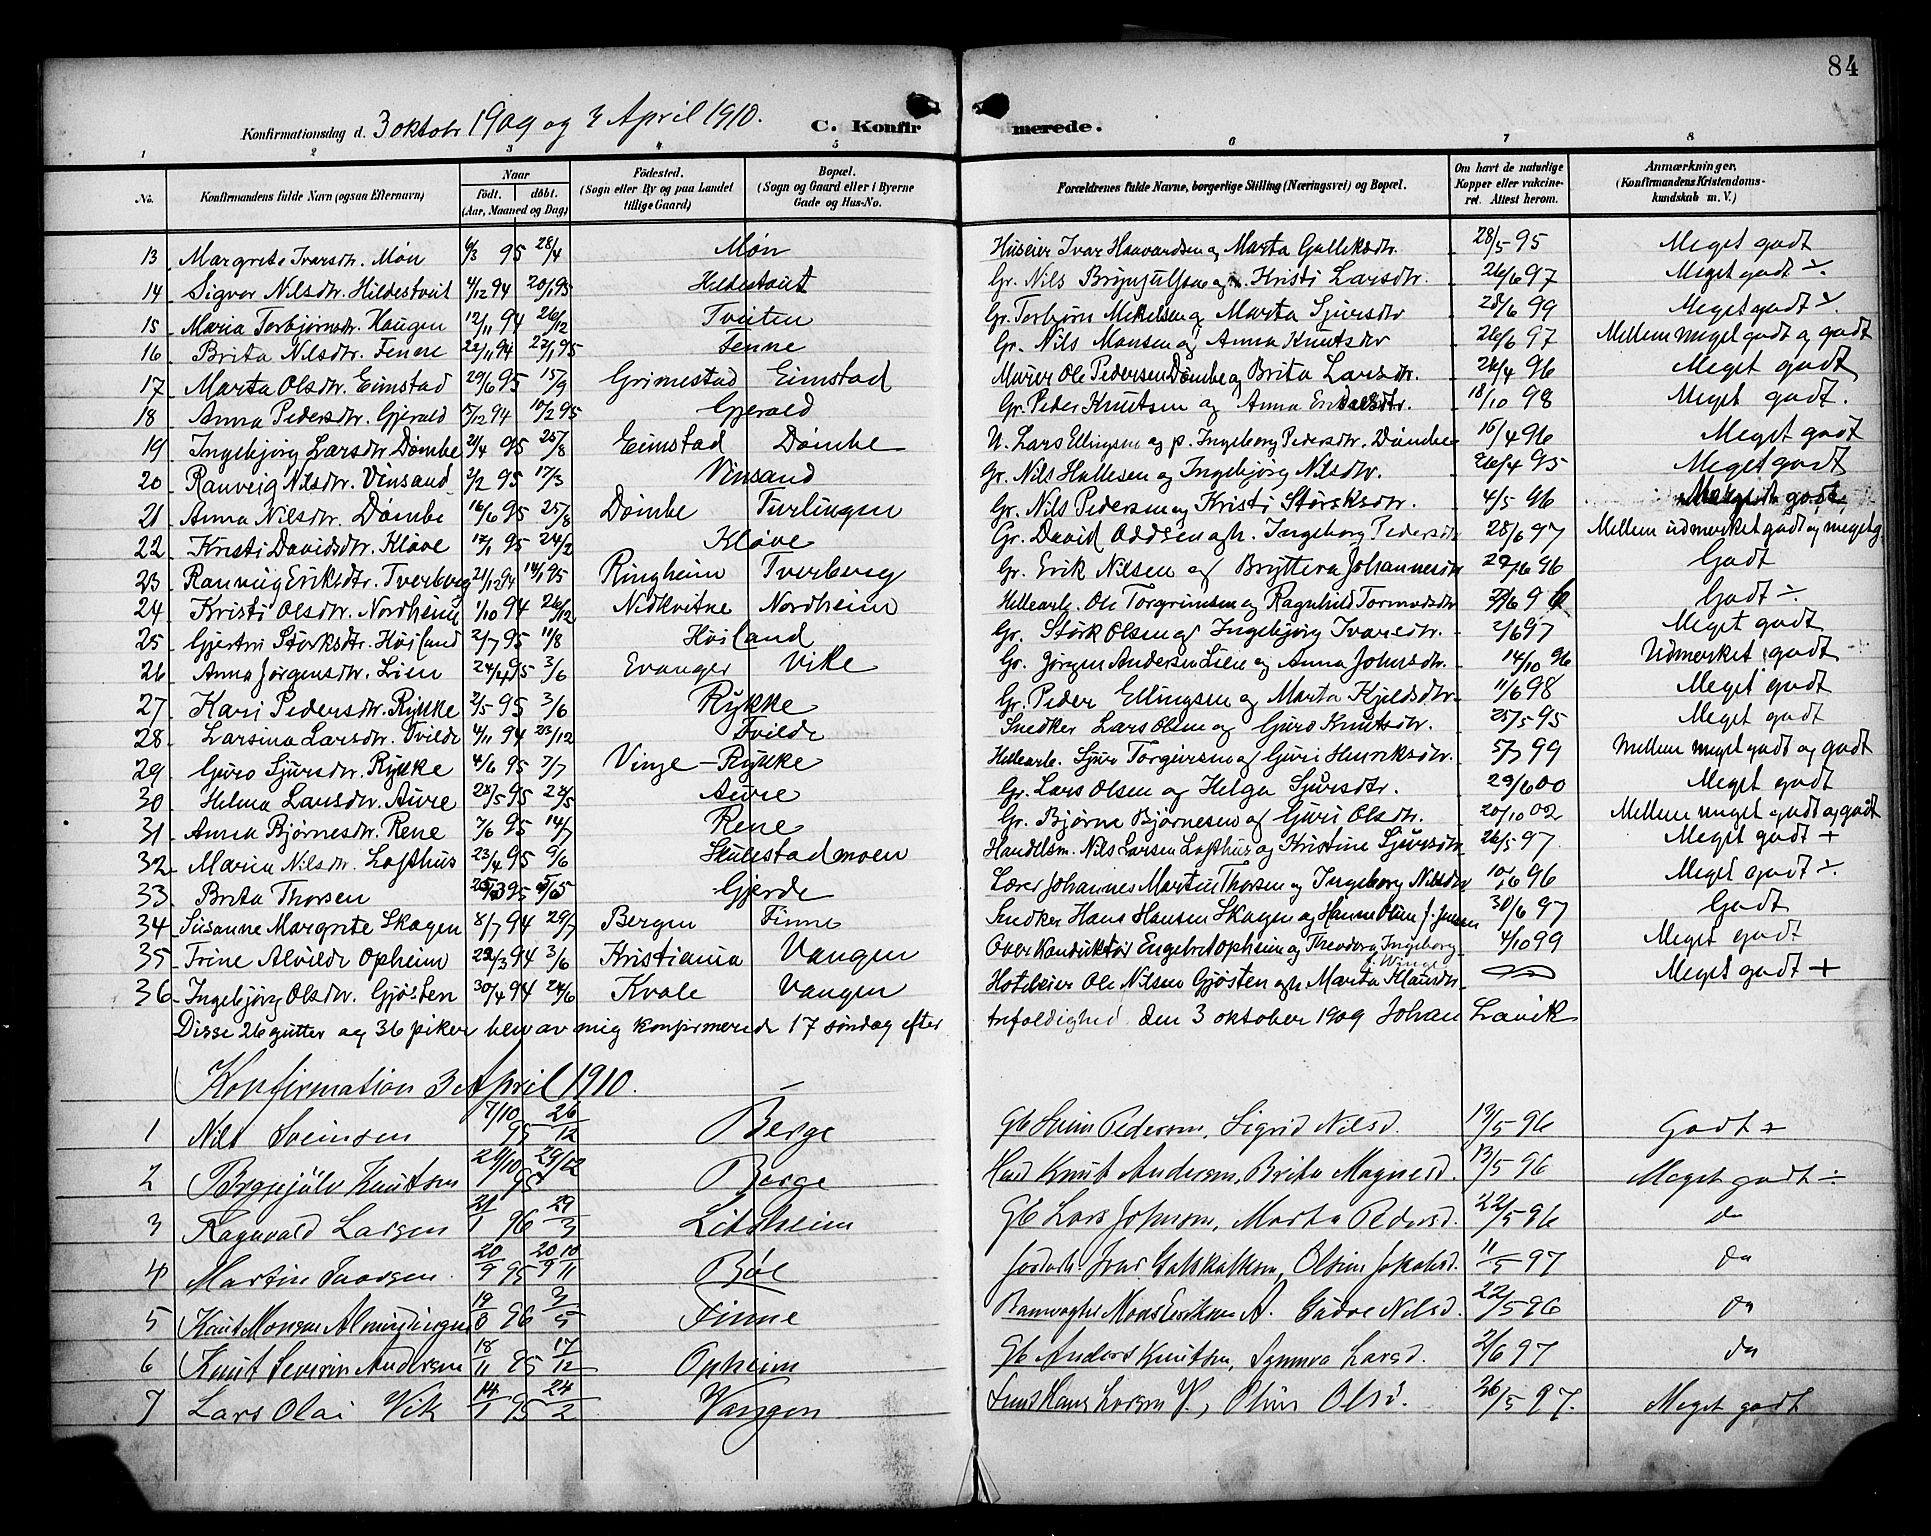 84
Konfirmationsdag d. 3 oktobr 1909 og 3 April 1910. C. Konfirmerede.
1 2 3 4 5 6 7 8
No. Konfirmandens fulde Navn (ogsaa Efternavn) Naar født. døbt. (Aar, Maaned og Dag) Fødested. (Sogn eller By og paa Landet tillige Gaard) Bopæl. (Sogn og Gaard eller i Byerne Gade og Hus-No. Forældrenes fulde Navne, borgerlige Stilling (Næringsvei) og Bopæl. Om havt de naturlige Kopper eller vakcineret. Attest herom. Anmærkninger. (Konfirmandens Kristendomskundskab m. V.)
13 Margrete Ivarsdtr. Møn 6/3 95 28/4 Møn Huseier Ivar Haavardsen og Marta Gulleksdtr. 28/5 95 Meget godt
14 Sigvor Nilsdtr. Hildestveit 4/12 94 20/1 95 Hildestveit Gr. Nils Brynjulfsen og Kristi Larsdtr. 26/6 97 Meget godt ÷.
15 Maria Torbjørnsdtr. Haugen 12/11 94 26/12 Tveiten Gr. Torbjørn Mikelsen og Marta Sjursdtr 28/6 99 Meget godt ÷
16 Brita Nilsdtr. Fenne 22/11 94 27/1 95 Fenne Gr. Nils Monsen og Anna Knutsdtr 26/6 97 Mellem meget godt og godt
17 Marta Olsdtr. Eimstad 29/6 95 15/9 Grimestad Eimstad Murer Ole Pedersen Dømbe og Brita Larsdtr. 24/4 96 Meget godt
18 Anna Pedersdtr. Gjerald 17/12 94 10/2 95 Gjerald Gr. Peder Knutsen og Anna Eriksdtr. 18/10 98 Meget godt.
19 Ingebjørg Larsdtr. Dømbe 21/4 95 25/8 Eimstad Dømbe U. Lars Ellingsen og p. Ingeborg Pedersdtr. Dømbe 16/4 96 Meget godt
20 Ranveig Nilsdtr. Vinsand 2/2 95 17/3 Vinsand Gr. Nils Hallesen og Ingebjørg Nilsdtr. 26/4 95 Meget godt
21 Anna Nilsdtr. Dømbe 16/6 95 25/8 Dømbe Turlingen Gr. Nils Pedersen og Kristi Størksdtr. 4/5 96 Meget godt
22 Kristi Davidsdtr. Kløve 17/1 95 24/2 Kløve Gr. David Oddsen og h. Ingeborg Pedersdtr 28/6 97 Mellem udmerket godt og meget g.
23 Ranveig Eriksdtr. Tverberg 21/12 94 14/1 95 Ringheim Tverberg Gr. Erik Nilsen og Bryttera Johannesdtr 29/6 96 Godt
24 Kristi Olsdtr. Nordheim 1/10 94 26/12 Nidkvitne Nordheim Hellearb. Ole Torgrimsen og Ragnhild Tormodsdtr Godt ÷
25 Gjertru Størksdtr. Høiland 2/7 95 11/8 Høiland Gr. Størk Olsen og Ingebjørg Ivarsdtr. 2/6 97 Meget godt
26 Anna Jørgensdtr. Lien 24/4 95 3/6 Evanger Vike Gr. Jørgen Andersen Lien og Anna Johnsdtr. 14/10 96 Udmerket godt
27 Kari Pedersdtr. Rykke 2/5 95 3/6 Rykke Gr. Peder Ellingsen og Marta Kjeldsdtr. 11/6 98 Meget godt
28 Larsina Larsdtr. Tvilde 4/11 94 23/12 Tvilde Snedker Lars Olsen og Guro Knutsdtr. 25/5 95 Meget godt
29 Guro Sjursdtr. Rykke 4/6 95 7/7 Vinje - Rykke Hellearb. Sjur Torgeirsen og Guri Henriksdtr. 5/7 99 Mellem meget godt og godt
30 Helma Larsdtr. Aure 95 Aure Gr. Lars Olsen og Helga Sjursdtr. 29/6 00 Meget godt
31 Anna Bjørnesdtr. Rene 7/6 95 14/7 Rene Gr. Bjørne Bjørnesen og Guri Olsdtr. 20/10 02 Mellem meget godt og godt
32 Maria Nilsdtr. Lofthus 23/4 95 9/6 Skulestadmoen Handelsm. Nils Larsen Lofthus og Kristine Sjursdtr 26/5 97. Meget godt +
33 Brita Thorsen 95 Gjerde Lærer Johannes Martin Thorsen og Ingeborg Nilsdtr 10/6 96 Meget godt ÷.
34 Susanne Margrete Skagen 8/7 94 29/7 Bergen Finne Snedker Hans Hansen Skagen og Hanne Oline J. Jensen 30/6 97 Godt
35 Trine Alvilde Opheim 22/3 94 3/6 Kristiania Vangen Over Konduktør Engebret Opheim og Theodora Ingeborg f. Winge 4/10 99 Meget godt
36 Ingebjørg Olsdtr. Gjøsten 30/4 94 24/6 Kvale Vangen Hoteleier Ole Nilsen Gjøsten og h. Marta Klausdtr. Meget godt +
Disse 26 gutter og 36 piker blev av mig konfirmerede 17 søndag efter trefoldighed den 3 oktober 1909 Johan Lavik
Konfirmation 3 April 1910.
1 Nils Sveinsen 7/10 95 26/12 Berge Gb Svein Pedersen, Sigrid Nilsd. 13/5 96 Godt +
2 Brynjulv Knutsen 24/10 95 29/12 Berge Husd Knut Andersen, Brita Magnesd. 13/5 96 Meget godt ÷
3 Ragnvald Larsen 21/1 96 29/3 Lidsheim Gb Lars Johnsen, Marta Pedersd. 22/5 96 do
4 Martin Ivarsen 20/9 95 10/11 Bøe Jordarb. Ivar Gotskalksen, Olsine Jakobsd. 11/5 97 do
5 Knut Monsen Almindingen 96 3/5 Finne Banevogter Mons Eriksen A. Gudve Nilsd. 22/5 96 do
6 Knut Severin Andersen 18/11 95 17/12 Opheim Gb Anders Knutsen, Synneva Larsd. 2/6 97 do
7 Lars Olai Vik 14/1 95 24/2 Vangen Hans Larsen V., Oline Olsd. 26/5 97. Meget godt